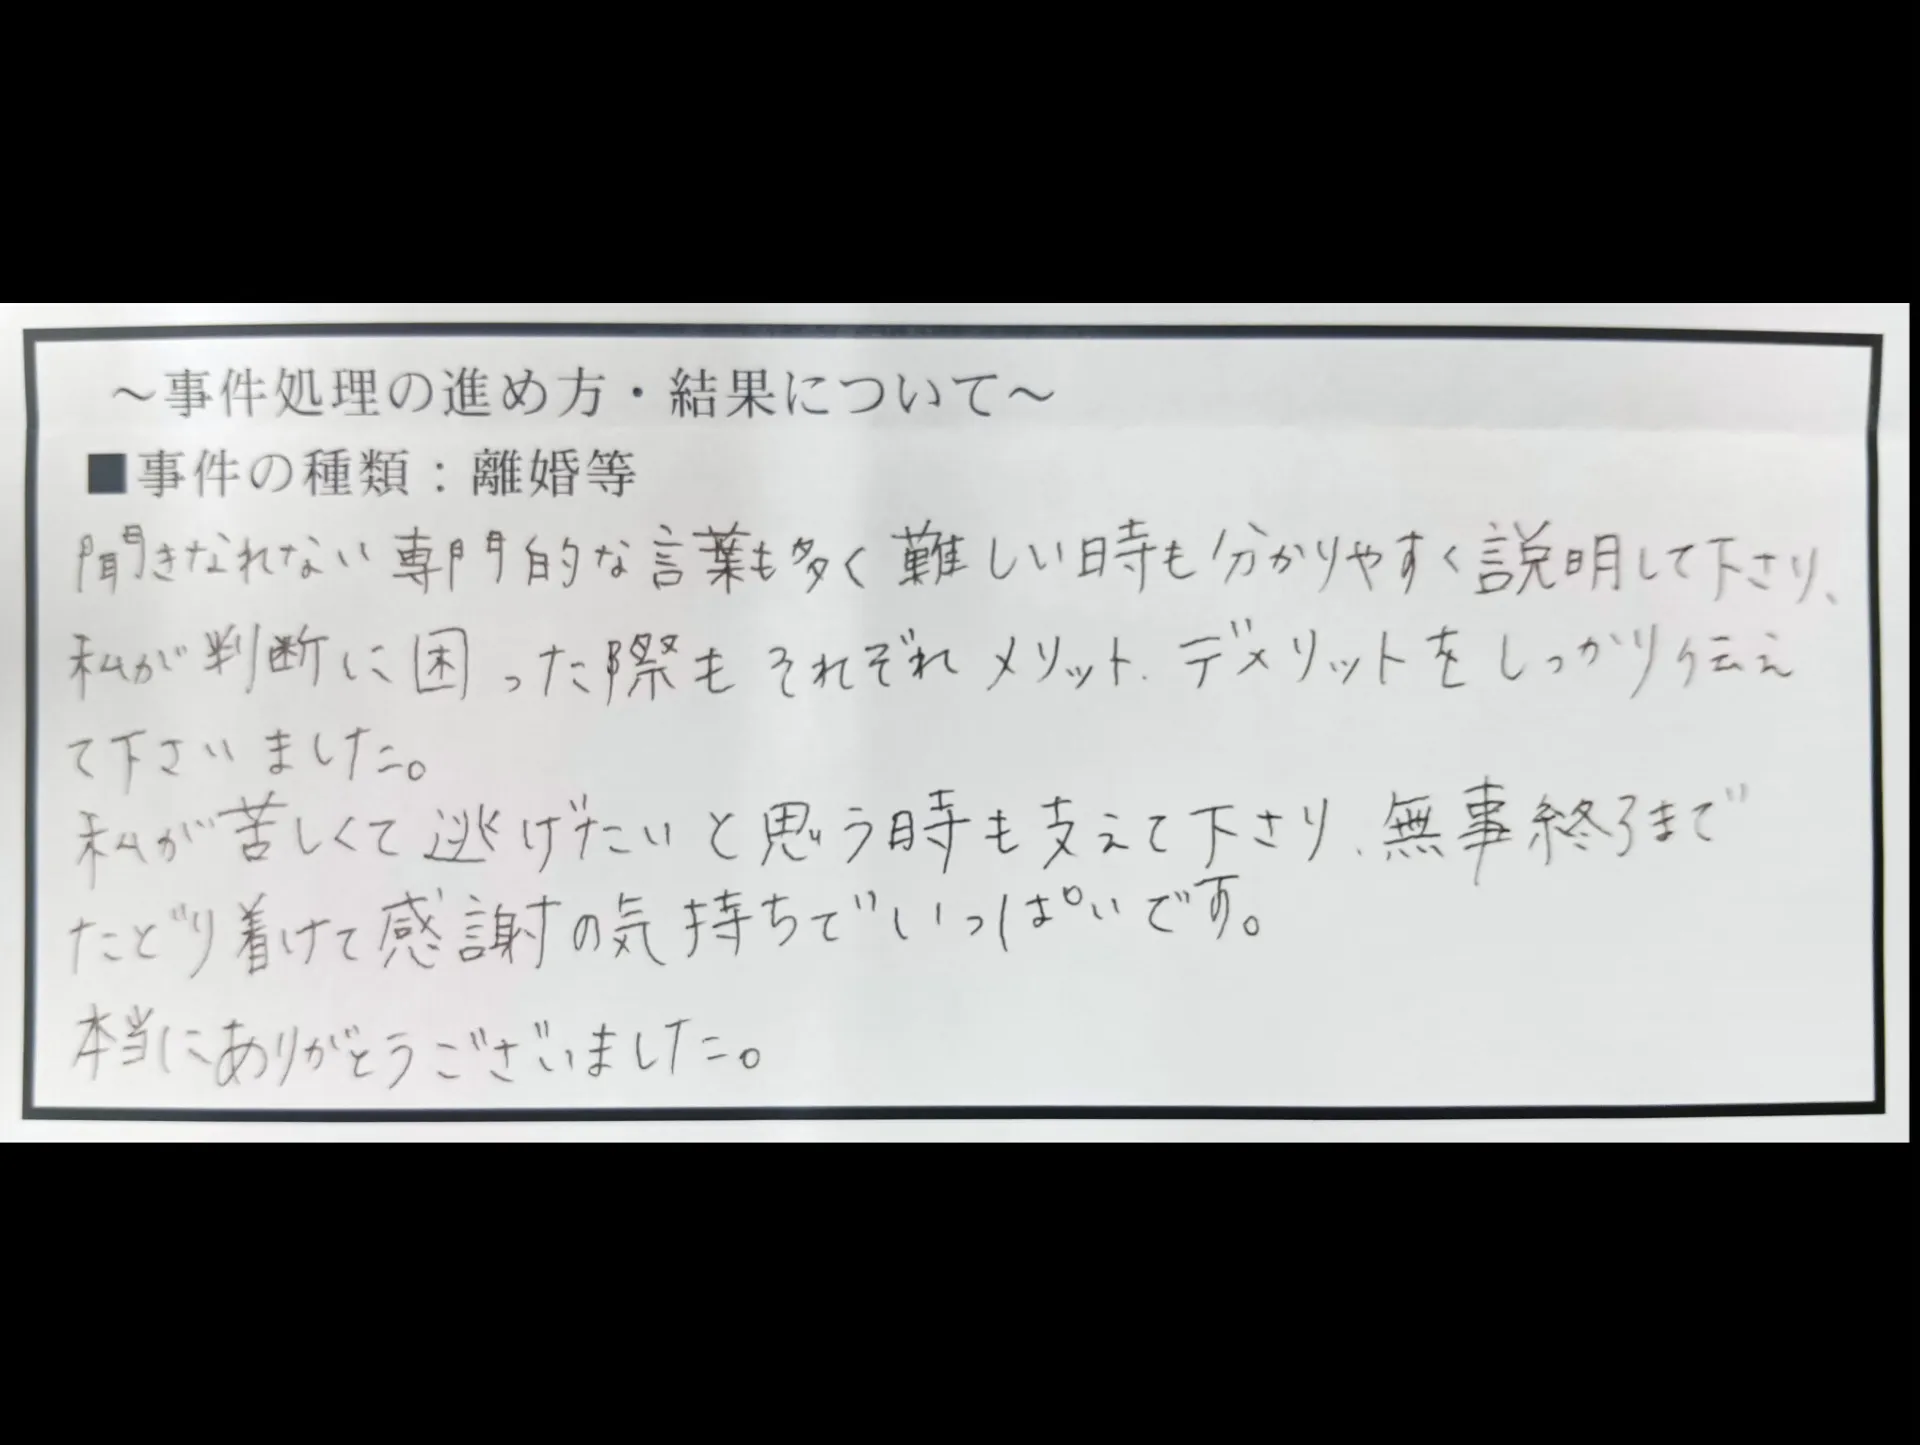 ～事件処理の進め方・結果について～
■事件の種類：離婚等
聞きなれない専門的な言葉も多く難しい時も分かりやすく説明して下さり、
私が判断に困った際もそれぞれメリット、デメリットをしっかり伝え
て下さいました。
私が苦しくて逃げたいと思う時も支えて下さり、無事終了まで
たどり着けて感謝の気持ちでいっぱいです。
本当にありがとうございました。